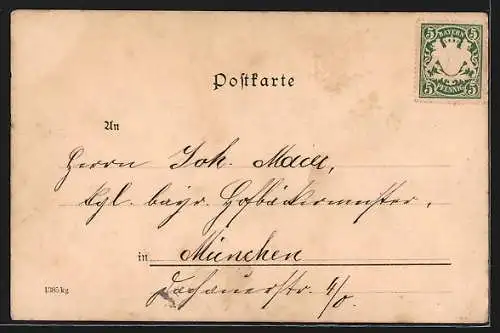 5 BAYERN 5
5 PFENNIG 5
Postkarte
An
Herrn Joh. Maier,
kgl. bayr. Hofbäckermeister,
in München
Dachauerstr. 4/0.
1385kg